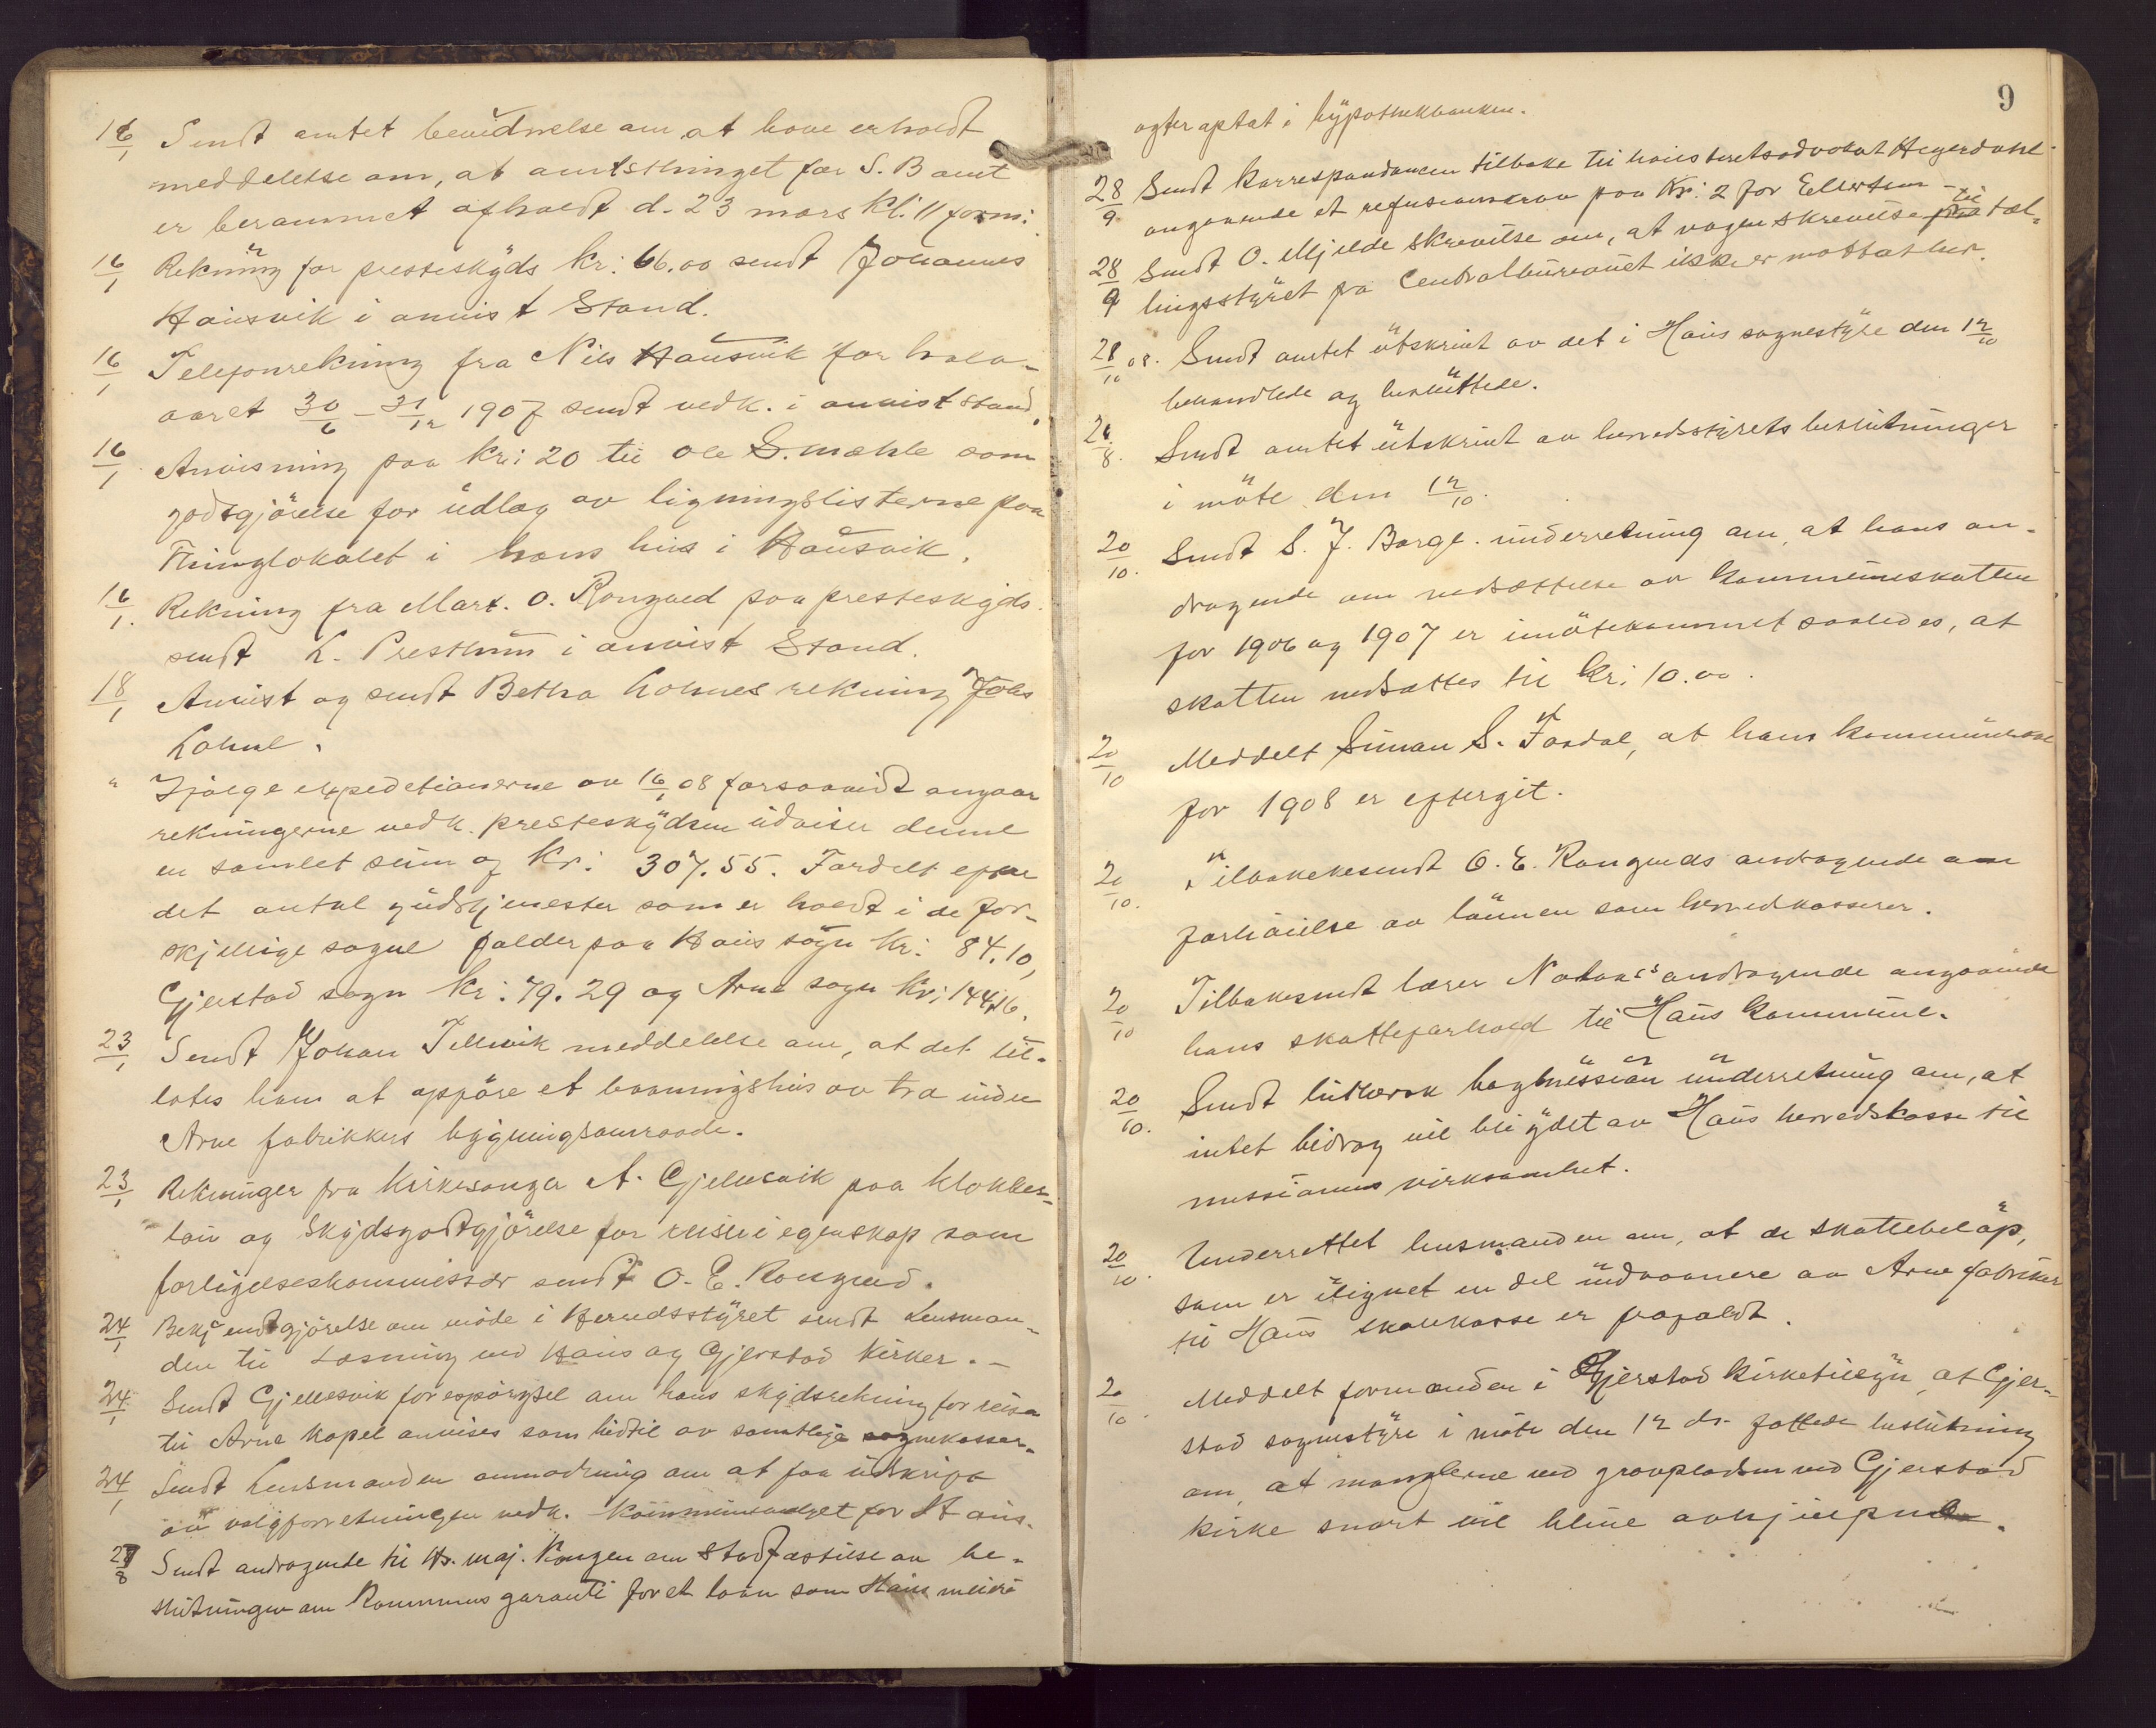 16/1 Sendt amtet bevidnelse om, at have erholdt
meddelelse om, at amtsthinget for S. B amt
er berammet afholdt d. 23 mars kl. 11 form:
16/1 Rekning for presteskyds kr: 66.00 sendt Johannes
Hausvik i anvist Stand.
16/1 Telefonrekning fra Nils Hausvik for halv-
aaret 30/6 - 31/12 1907 sendt vedk. i anvist stand.
16/1 Anvisning paa kr: 20 til Ole S. Mæhle som
godtgjörelse for üdlæg av ligningslisterne paa
Thinglokalet i hans hus i Hausvik.
16/1. Rekning fra Mart. O. Rongved paa presteskyds
sendt L. Presthun i anvist Stand.
18/1 Anvist og sendt Betha Lohnes rekning Johs
Lohne.
" Ifjölge expeditionerne av 16/1 08 forsaavidt angaar
rekningerne vedk. presteskydsen üdviser denne
en samlet süm af Kr: 307.55. Fordelt efter
det antal güdstjenester som er holdt i de for-
skjellige sogne falder paa Haus sogn kr: 84.10,
Gjerstad sogn kr: 79.29 og Arne sogn kr: 144.16.
23/1 Sendt Johan Tellevik meddelelse om, at det til-
lates ham at opföre et vaaningshus av træ inden
Arne fabrikkers bygningsomraade.
23/1 Rekninger fra kirkesanger A. Gjellesvik paa klokker-
lön og Skydsgodtgjörelse for reiser i egenskap som
forligelseskommissær sendt O. E. Rongved.
24/1 Bekjendtgjörelse om möde i Herredsstyret sendt Lensman-
den til Læsning ved Haus og Gjerstad kirker. -
24/1 Sendt Gjellesvik forespörgsel om hans skydsrekning for reiser
til Arne kapel anvises som hidtil av samtlige sognekasser.
24/1 Sendt Lensmanden anmodning om at faa üdskript
av valgforretningen vedk. kommunevalget for Haus.
28/8 Sendt andragende til Hs. Maj. Kongen om Stadfæstelse av be-
slutningen om kommunes garanti for et laan som Haus meieri
9
agter optat i hypothekbanken.
28/9 Sendt korrespondancen tilbake til höiesteretsadvokat Heyerdahl
angaaende et refusionskrav paa Kr: 2 for Ellertsen -
28/9 Sendt O. Mjelde skrivelse om, at nogen skrivelse til tæl-
lingsstyret fra Centralbureauet ikke er mottat her.
28/10 08. Sendt amtet utskrivt av det i Haus sognestyre den 12/10
behandlede og besluttede.
28/8. Sendt amtet utskrivt av herredsstyrets beslutninger
i möte den 12/10.
20/10. Sendt S. J. Borge. underretning om, at hans an-
dragende om nedsættelse av kommuneskatten
for 1906 og 1907 er imötekommet saaledes, at
skatten nedsattes til kr: 10.00.
20/10 Meddelt Simon S. Tordal, at hans kommuneskat
for 1908 er eftergit.
20/10. Tilbakekesendt O. E. Rongveds andragende om
forhöielse av lönnen som herredkasserer.
20/10 Tilbakesendt lærer Nataas andragende angaaende
hans skatteforhold til Haus kommune.
20/10. Sendt luthersk bagmission underretning om, at
intet bidrag vil bli ydet av Haus herredskasse til
missionens virksomhet.
20/10. Underrettet lensmanden om, at de skattebelöp,
som er ilignet en del indvaanere av Arne fabriker
til Haus skolekasse er frafaldt.
20/10. Meddelt formanden i Gjerstad kirketilsyn, at Gjer-
stad sognestyre i möte den 12 ds. fattede beslutning
om, at manglerne ved gravpladsen ved Gjerstad
kirke snart vil blive avhjulpne.